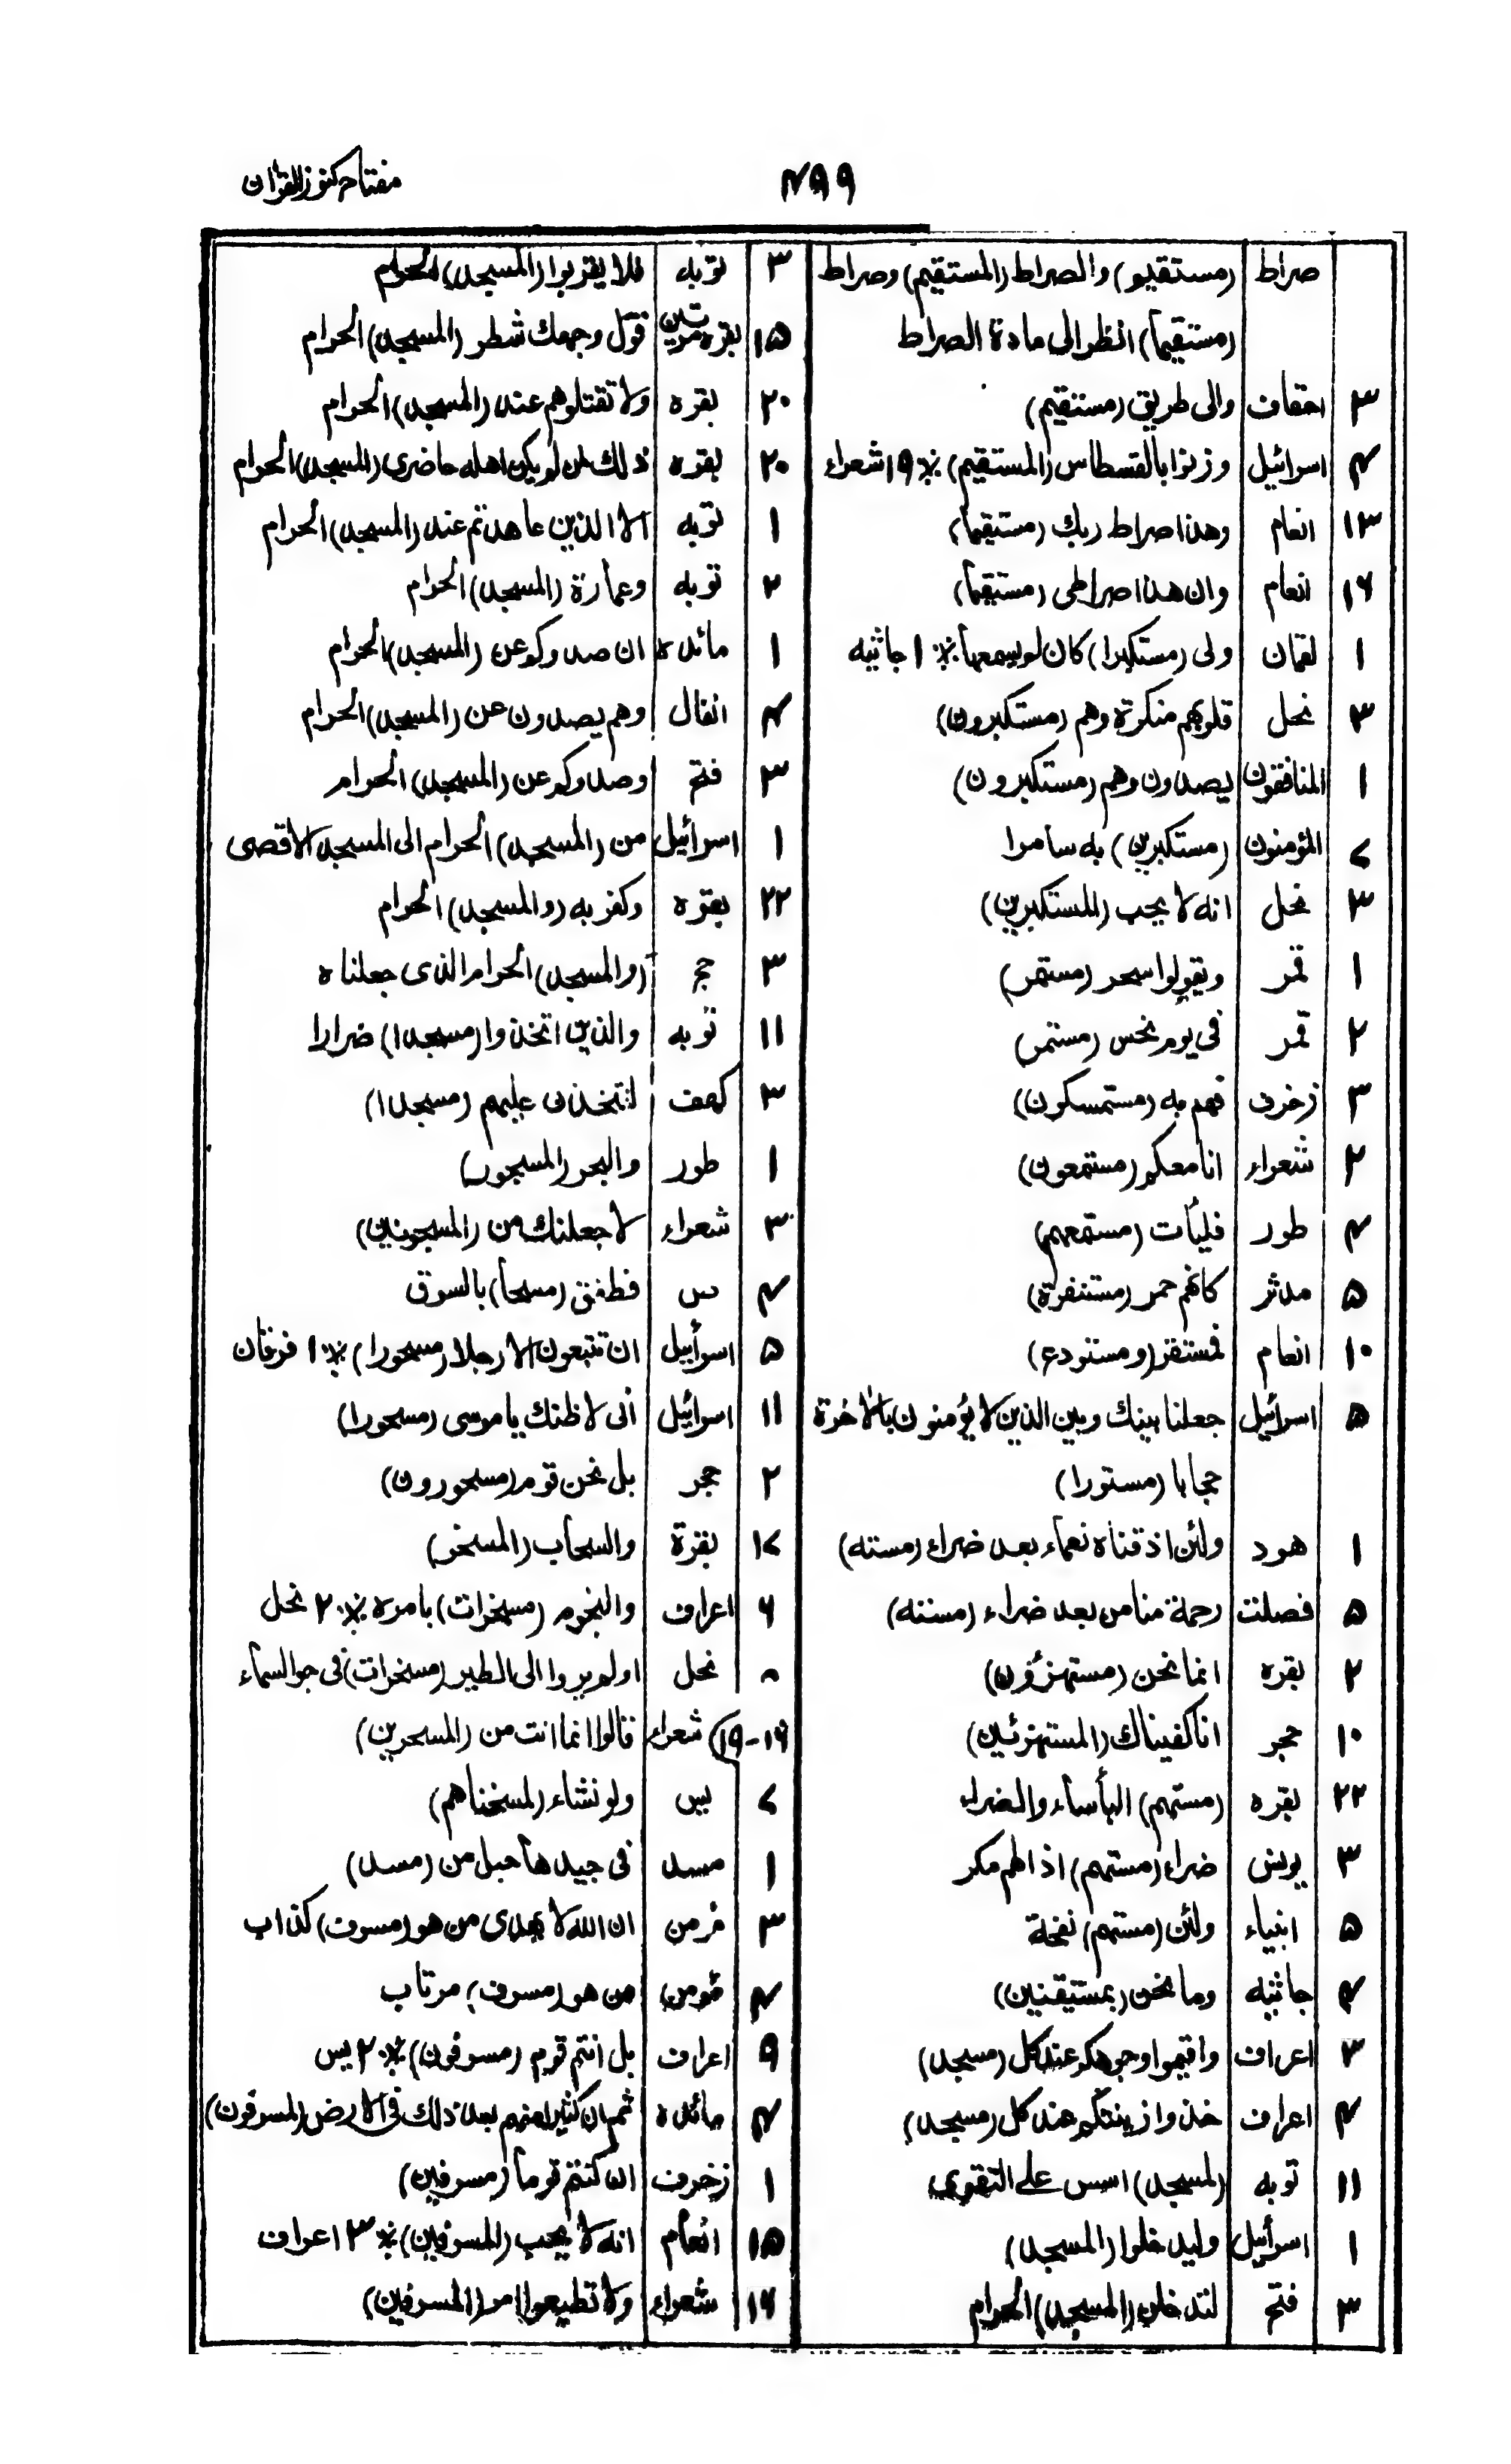 ۴۹۹
مفتاح كنوز القران
صراط (مستقيم) والصراط (المستقيم) وصراط
(مستقيما) انظر الى مادة الصراط
۳ احقاف والى طريق (مستقيم)
۴ اسرائيل وزنوا بالقسطاس (المستقيم) ٪ ۱۹ شعراء
۱۳ انعام وهذا صراط ربك (مستقيما)
۱۶ انعام وان هذا صراطى (مستقيما)
۱ لقمان ولى (مستكبرا) كان لم يسمعها ٪ ۱ جاثيه
۳ نحل قلوبهم منكرة وهم (مستكبرون)
۱ المنافقون يصدون وهم (مستكبرون)
۷ المؤمنون (مستكبرين) به سامرا
۳ نحل انه لا يحب (المستكبرين)
۱ قمر ويقولوا سحر (مستمر)
۲ قمر فى يوم نحس (مستمر)
۳ زخرف فهم به (مستمسكون)
۲ شعراء انا معكم (مستمعون)
۴ طور فليأت (مستمعهم)
۵ مدثر كانهم حمر (مستنفرة)
۱۰ انعام فمستقر (ومستودع)
۵ اسرائيل جعلنا بينك وبين الذين لا يؤمنون بالاخرة
حجابا (مستورا)
۱ هود ولئن اذقناه نعماء بعد ضراء (مسته)
۵ فصلت رحمة منا من بعد ضراء (مسته)
۲ بقره انما نحن (مستهزؤن)
۱۰ حجر انا كفيناك (المستهزئين)
۲۲ بقره (مستهم) البأساء والضراء
۳ يونس ضراء (مستهم) اذا لهم مكر
۵ انبياء ولئن (مستهم) نفحة
۴ جاثيه وما نحن (بمستيقنين)
۳ اعراف واقيموا وجوهكم عند كل (مسجد)
۴ اعراف خذوا زينتكم عند كل (مسجد)
۱۱ توبه (لمسجد) اسس على التقوى
۱ اسرائيل وليدخلوا (المسجد)
۳ فتح لتدخلن (المسجد) الحرام
۳ توبه فلا يقربوا (المسجد) الحرام
۱۵ بقره مرتين فول وجهك شطر (المسجد) الحرام
۲۰ بقره ولا تقتلوهم عند (المسجد) الحرام
۲۰ بقره ذلك لمن لم يكن اهله حاضرى (المسجد) الحرام
۱ توبه الا الذين عاهدتم عند (المسجد) الحرام
۲ توبه وعمارة (المسجد) الحرام
۱ مائده ان صدوكم عن (المسجد) الحرام
۴ انفال وهم يصدون عن (المسجد) الحرام
۳ فتح وصدوكم عن (المسجد) الحرام
۱ اسرائيل من (المسجد) الحرام الى المسجد الاقصى
۲۲ بقره وكفر به (والمسجد) الحرام
۳ حج (والمسجد) الحرام الذى جعلناه
۱۱ توبه والذين اتخذوا (مسجدا) ضرارا
۳ كهف لنتخذن عليهم (مسجدا)
۱ طور والبحر (المسجور)
۳ شعراء لاجعلنك من (المسجونين)
۴ ص فطفق (مسحا) بالسوق
۵ اسرائيل ان تتبعون الا رجلا (مسحورا) ٪ ۱ فرقان
۱۱ اسرائيل انى لاظنك يا موسى (مسحورا)
۲ حجر بل نحن قوم (مسحورون)
۱۷ بقرة والسحاب (المسخر)
۶ اعراف والنجوم (مسخرات) بامره ٪ ۲ نحل
۸ نحل اولم يروا الى الطير (مسخرات) فى جو السماء
۱۹-۱۶ شعراء قالوا انما انت من (المسحرين)
۷ يس ولو نشاء (لمسخناهم)
۱ مسد فى جيدها حبل من (مسد)
۳ مؤمن ان الله لا يهدى من هو (مسرف) كذاب
۴ مؤمن من هو (مسرف) مرتاب
۹ اعراف بل انتم قوم (مسرفون) ٪ ۲ يس
۴ مائده ثم ان كثيرا منهم بعد ذلك فى الارض (لمسرفون)
۱ زخرف ان كنتم قوما (مسرفين)
۱۵ انعام انه لا يحب (المسرفين) ٪ ۳ اعراف
۱۶ شعراء ولا تطيعوا امر (المسرفين)